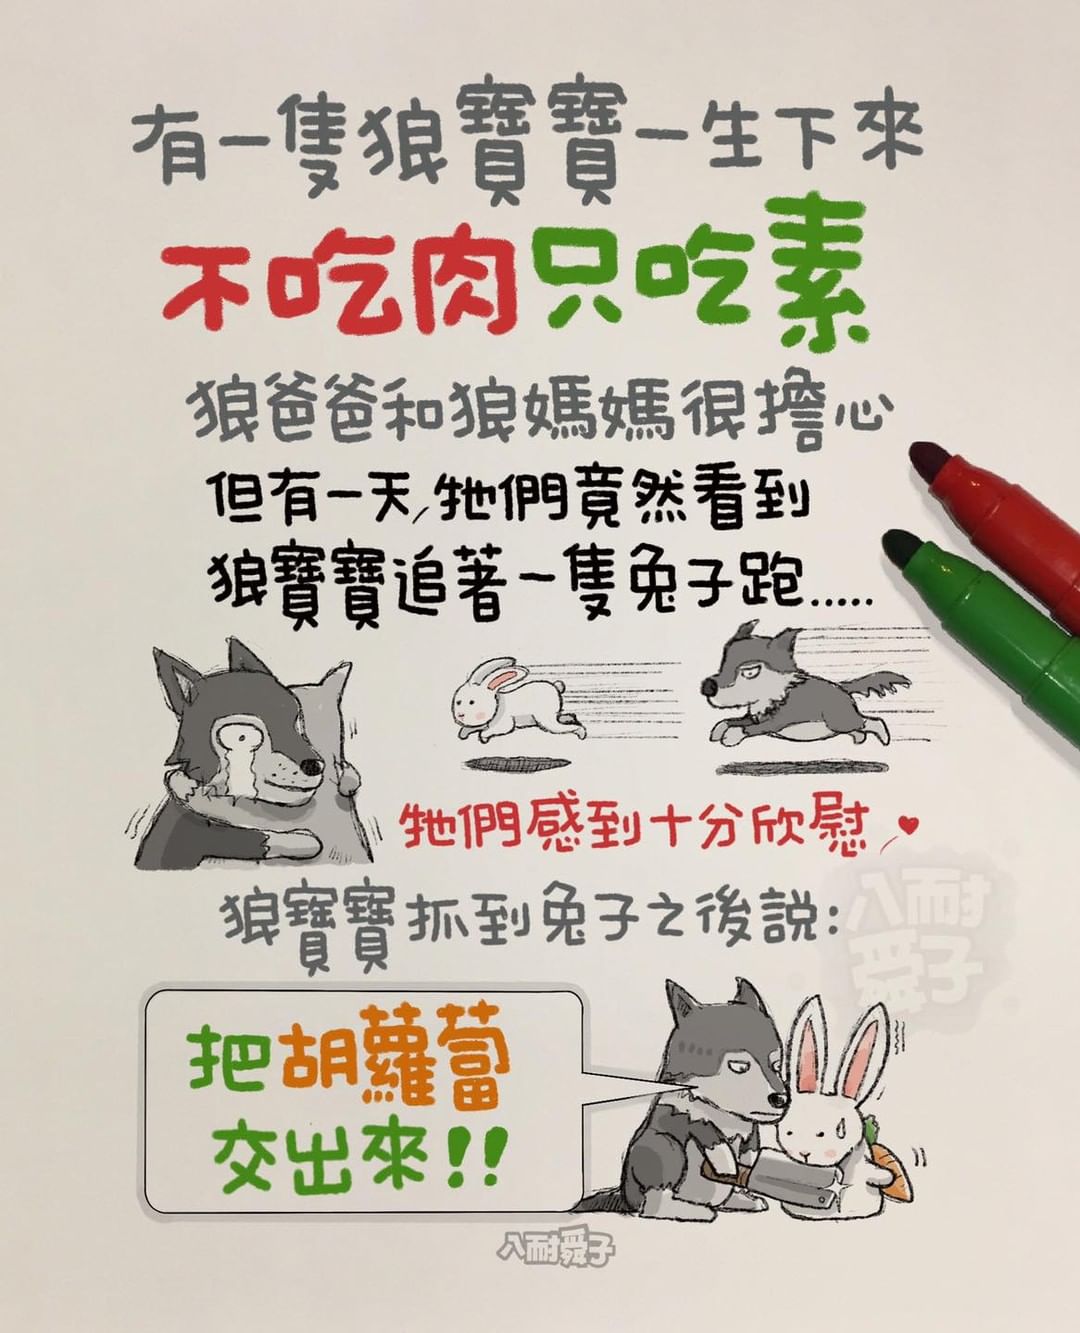 有一隻狼寶寶一生下來
不吃肉只吃素
狼爸爸和狼媽媽很擔心
但有一天,牠們竟然看到
狼寶寶追著一隻兔子跑.....
牠們感到十分欣慰
狼寶寶抓到兔子之後説:
把胡蘿蔔
交出來!!
八耐
舜子
八耐舜子